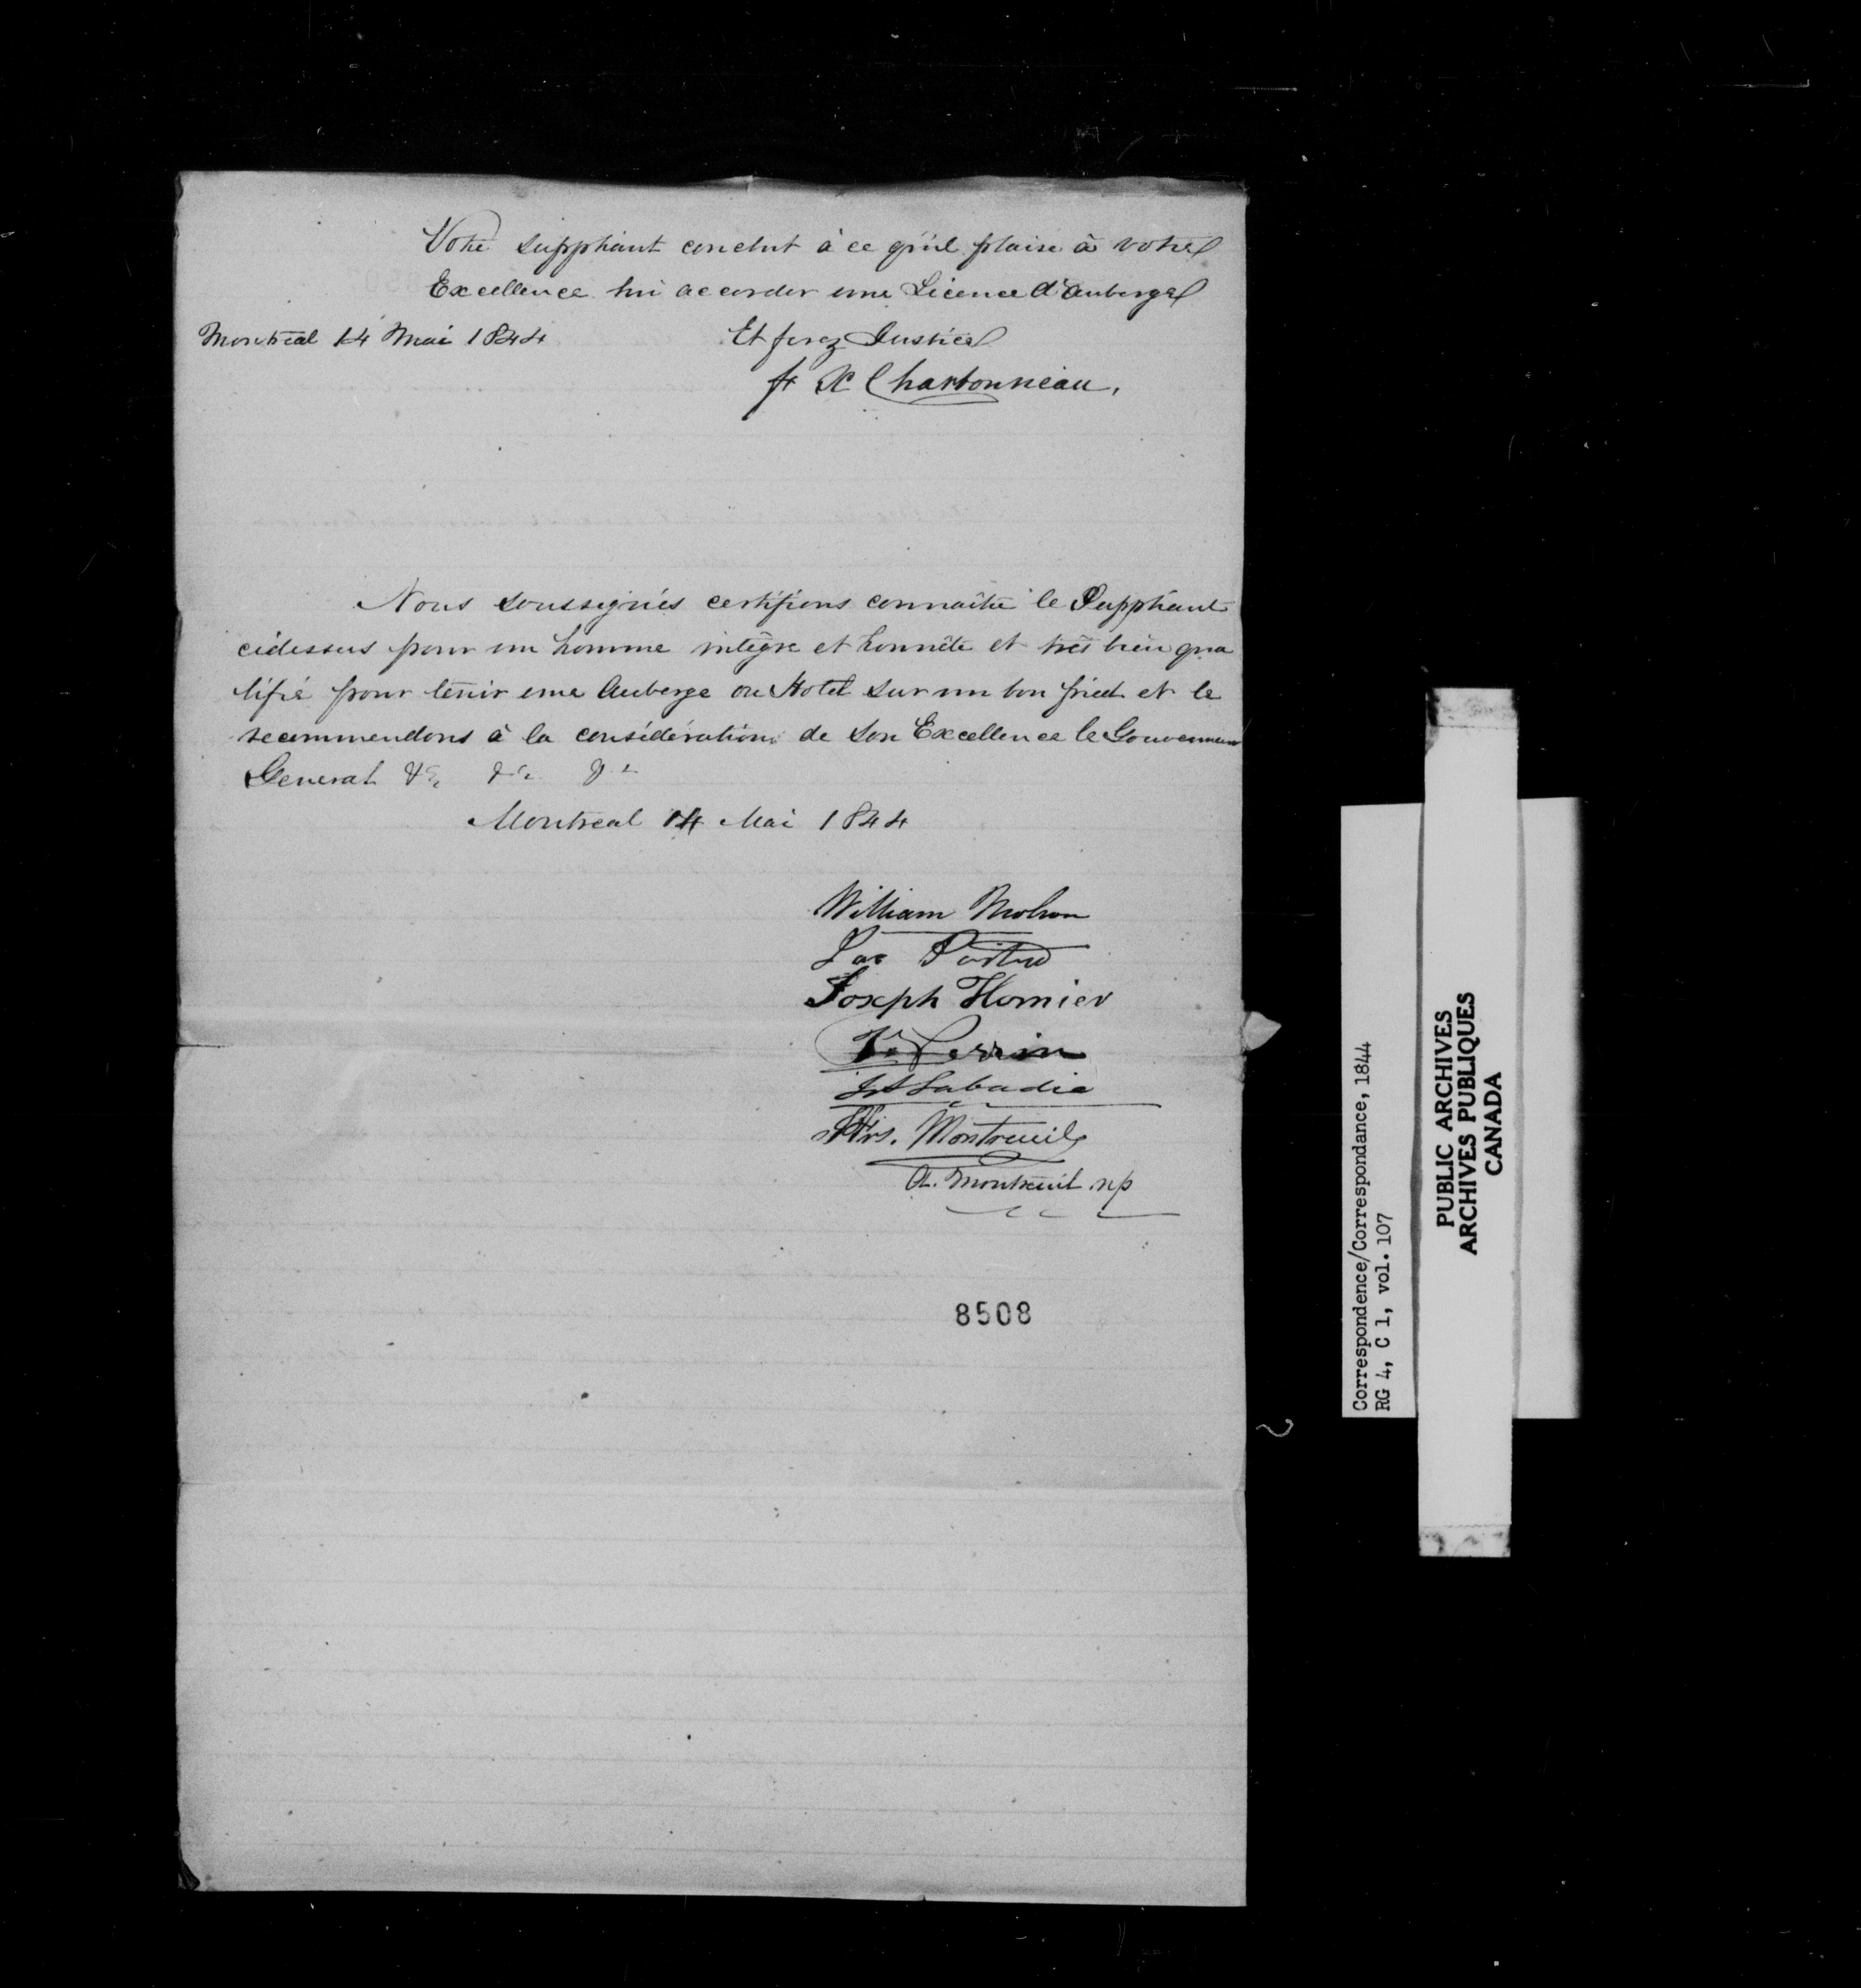 Votre suppliant conclut à ce qu'il plaise à votre
Excellence lui accorder une Licence d'auberge
Montreal 14 Mai 1844
Et ferez Justice
fr X Charbonneau,
Nous soussignés certifions connaître le Suppliant
cidessus pour un homme intègre et honnête et très bien qua
lifié pour tenir une Auberge ou Hotel sur un bon pied et le
recommendons à la considération de Son Excellence le Gouverneur
General &c &c &c
Montreal 14 Mai 1844
William Molson
Joseph Homier
Perrin
Labadie
Montreuil
A. Montreuil np
8508
Correspondence/Correspondance, 1844
RG 4, C 1, vol. 107
PUBLIC ARCHIVES
ARCHIVES PUBLIQUES
CANADA